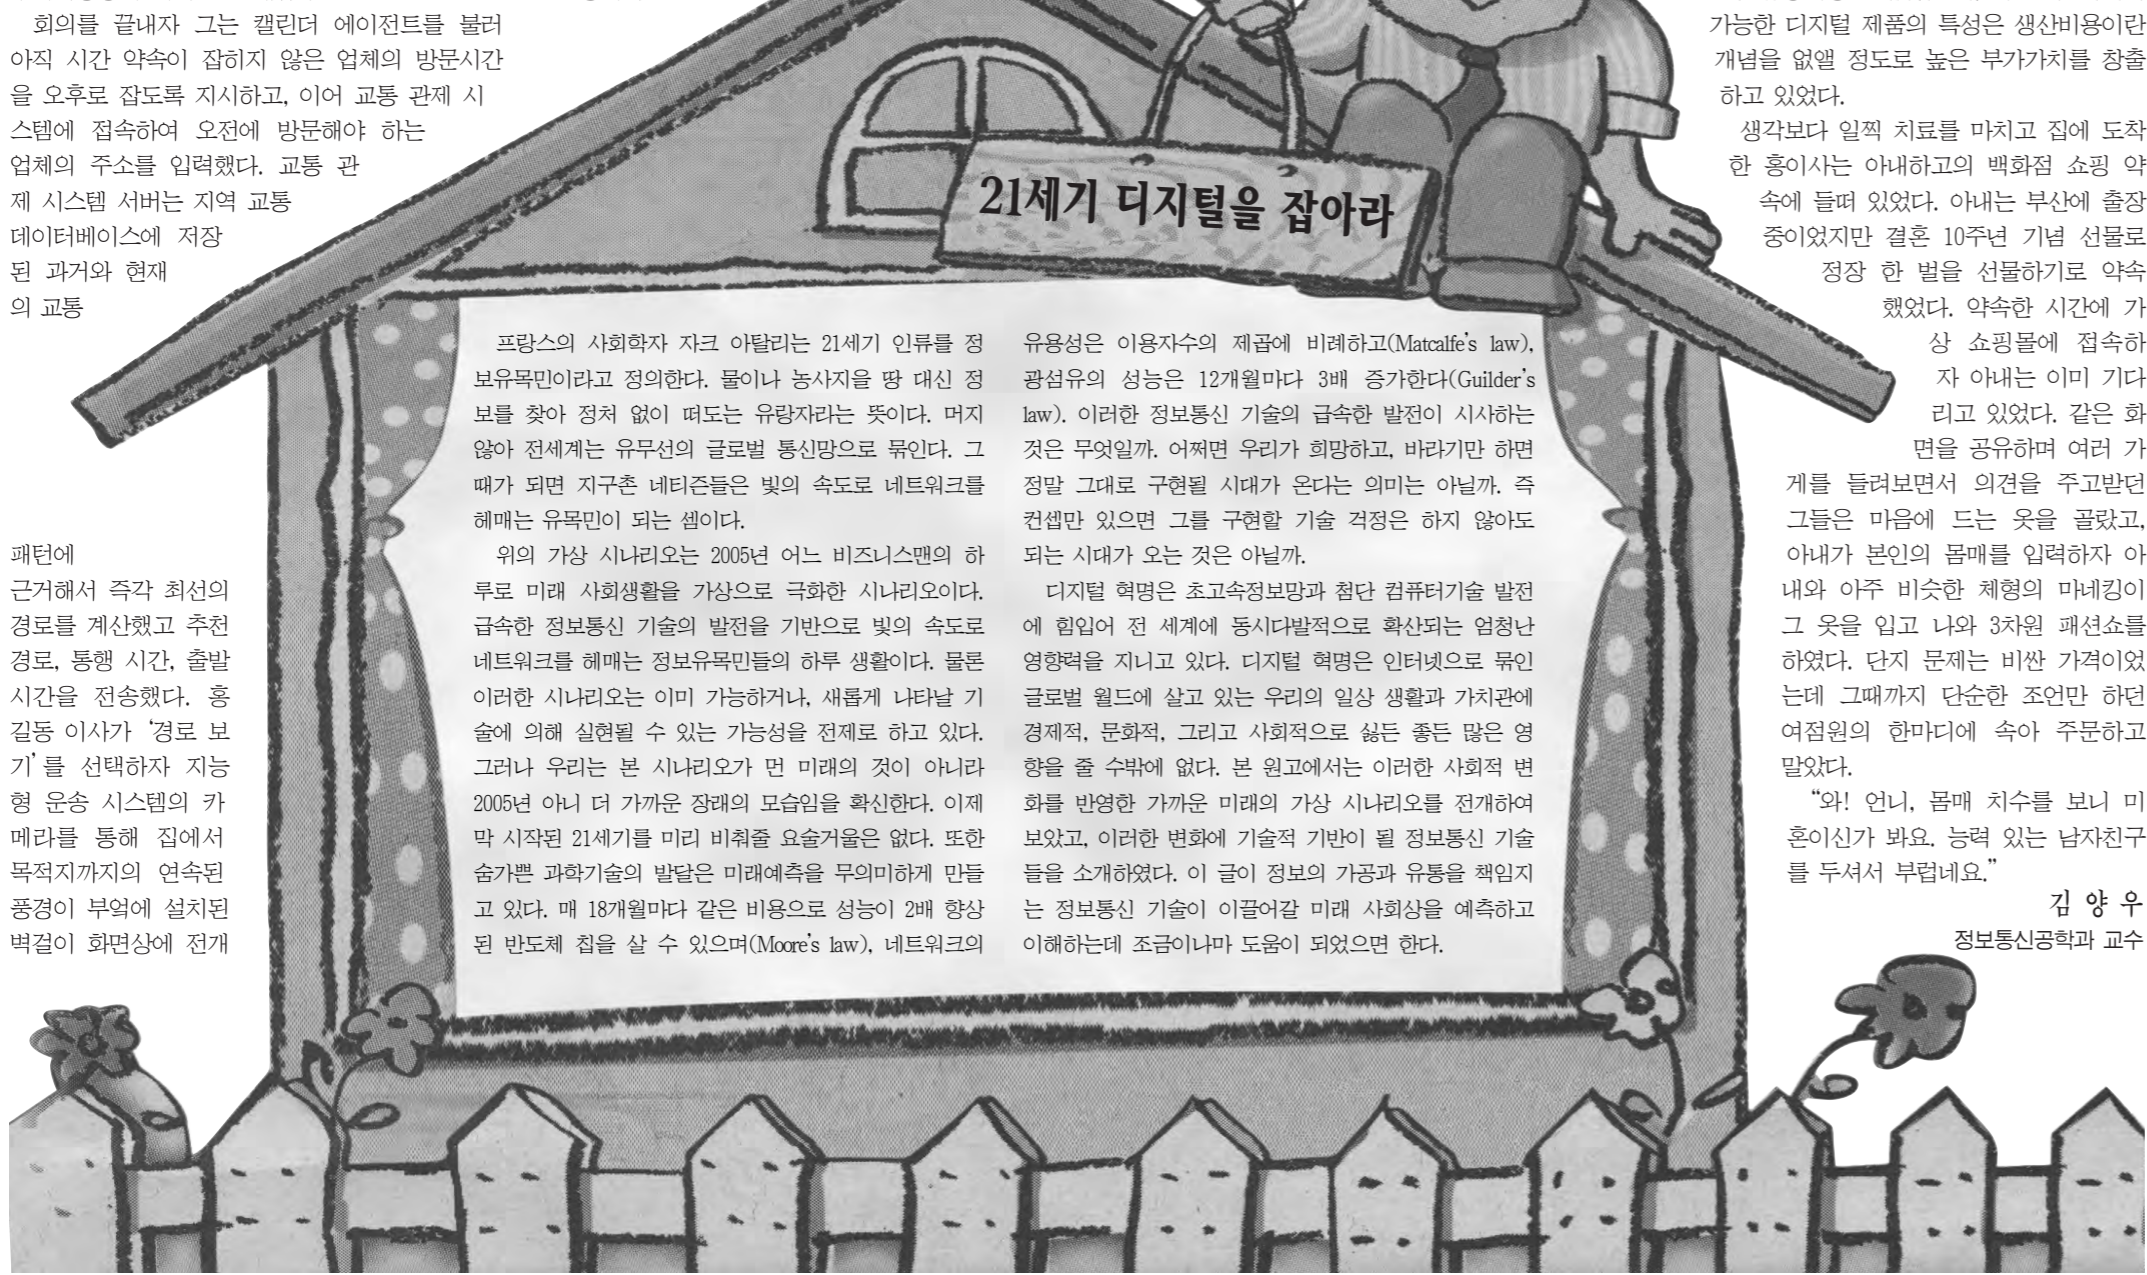 회의를 끝내자 그는 캘린더 에이전트를 불러
아직 시간 약속이 잡히지 않은 업체의 방문시간
을 오후로 잡도록 지시하고, 이어 교통 관제 시
스템에 접속하여 오전에 방문해야 하는
업체의 주소를 입력했다. 교통 관
제 시스템 서버는 지역 교통
데이터베이스에 저장
된 과거와 현재
의 교통
패턴에
근거해서 즉각 최선의
경로를 계산했고 추천
경로, 통행 시간, 출발
시간을 전송했다. 홍
길동 이사가 ‘경로 보
기’를 선택하자 지능
형 운송 시스템의 카
메라를 통해 집에서
목적지까지의 연속된
풍경이 부엌에 설치된
벽걸이 화면상에 전개
21세기 디지털을 잡아라
프랑스의 사회학자 자크 아탈리는 21세기 인류를 정
보유목민이라고 정의한다. 물이나 농사지을 땅 대신 정
보를 찾아 정처 없이 떠도는 유랑자라는 뜻이다. 머지
않아 전세계는 유무선의 글로벌 통신망으로 묶인다. 그
때가 되면 지구촌 네티즌들은 빛의 속도로 네트워크를
헤매는 유목민이 되는 셈이다.
위의 가상 시나리오는 2005년 어느 비즈니스맨의 하
루로 미래 사회생활을 가상으로 극화한 시나리오이다.
급속한 정보통신 기술의 발전을 기반으로 빛의 속도로
네트워크를 헤매는 정보유목민들의 하루 생활이다. 물론
이러한 시나리오는 이미 가능하거나, 새롭게 나타날 기
술에 의해 실현될 수 있는 가능성을 전제로 하고 있다.
그러나 우리는 본 시나리오가 먼 미래의 것이 아니라
2005년 아니 더 가까운 장래의 모습임을 확신한다. 이제
막 시작된 21세기를 미리 비춰줄 요술거울은 없다. 또한
숨가쁜 과학기술의 발달은 미래예측을 무의미하게 만들
고 있다. 매 18개월마다 같은 비용으로 성능이 2배 향상
된 반도체 칩을 살 수 있으며(Moore’s law), 네트워크의
유용성은 이용자수의 제곱에 비례하고(Matcalfe’s law),
광섬유의 성능은 12개월마다 3배 증가한다(Guilder’s
law). 이러한 정보통신 기술의 급속한 발전이 시사하는
것은 무엇일까. 어쩌면 우리가 희망하고, 바라기만 하면
정말 그대로 구현될 시대가 온다는 의미는 아닐까. 즉
컨셉만 있으면 그를 구현할 기술 걱정은 하지 않아도
되는 시대가 오는 것은 아닐까.
디지털 혁명은 초고속정보망과 첨단 컴퓨터기술 발전
에 힘입어 전 세계에 동시다발적으로 확산되는 엄청난
영향력을 지니고 있다. 디지털 혁명은 인터넷으로 묶인
글로벌 월드에 살고 있는 우리의 일상 생활과 가치관에
경제적, 문화적, 그리고 사회적으로 싫든 좋든 많은 영
향을 줄 수밖에 없다. 본 원고에서는 이러한 사회적 변
화를 반영한 가까운 미래의 가상 시나리오를 전개하여
보았고, 이러한 변화에 기술적 기반이 될 정보통신 기술
들을 소개하였다. 이 글이 정보의 가공과 유통을 책임지
는 정보통신 기술이 이끌어갈 미래 사회상을 예측하고
이해하는데 조금이나마 도움이 되었으면 한다.
가능한 디지털 제품의 특성은 생산비용이란
개념을 없앨 정도로 높은 부가가치를 창출
하고 있었다.
생각보다 일찍 치료를 마치고 집에 도착
한 홍이사는 아내하고의 백화점 쇼핑 약
속에 들떠 있었다. 아내는 부산에 출장
중이었지만 결혼 10주년 기념 선물로
정장 한 벌을 선물하기로 약속
했었다. 약속한 시간에 가
상 쇼핑몰에 접속하
자 아내는 이미 기다
리고 있었다. 같은 화
면을 공유하며 여러 가
게를 들려보면서 의견을 주고받던
그들은 마음에 드는 옷을 골랐고,
아내가 본인의 몸매를 입력하자 아
내와 아주 비슷한 체형의 마네킹이
그 옷을 입고 나와 3차원 패션쇼를
하였다. 단지 문제는 비싼 가격이었
는데 그때까지 단순한 조언만 하던
여점원의 한마디에 속아 주문하고
말았다.
“와! 언니, 몸매 치수를 보니 미
혼이신가 봐요. 능력 있는 남자친구
를 두셔서 부럽네요.”
김 양 우
정보통신공학과 교수